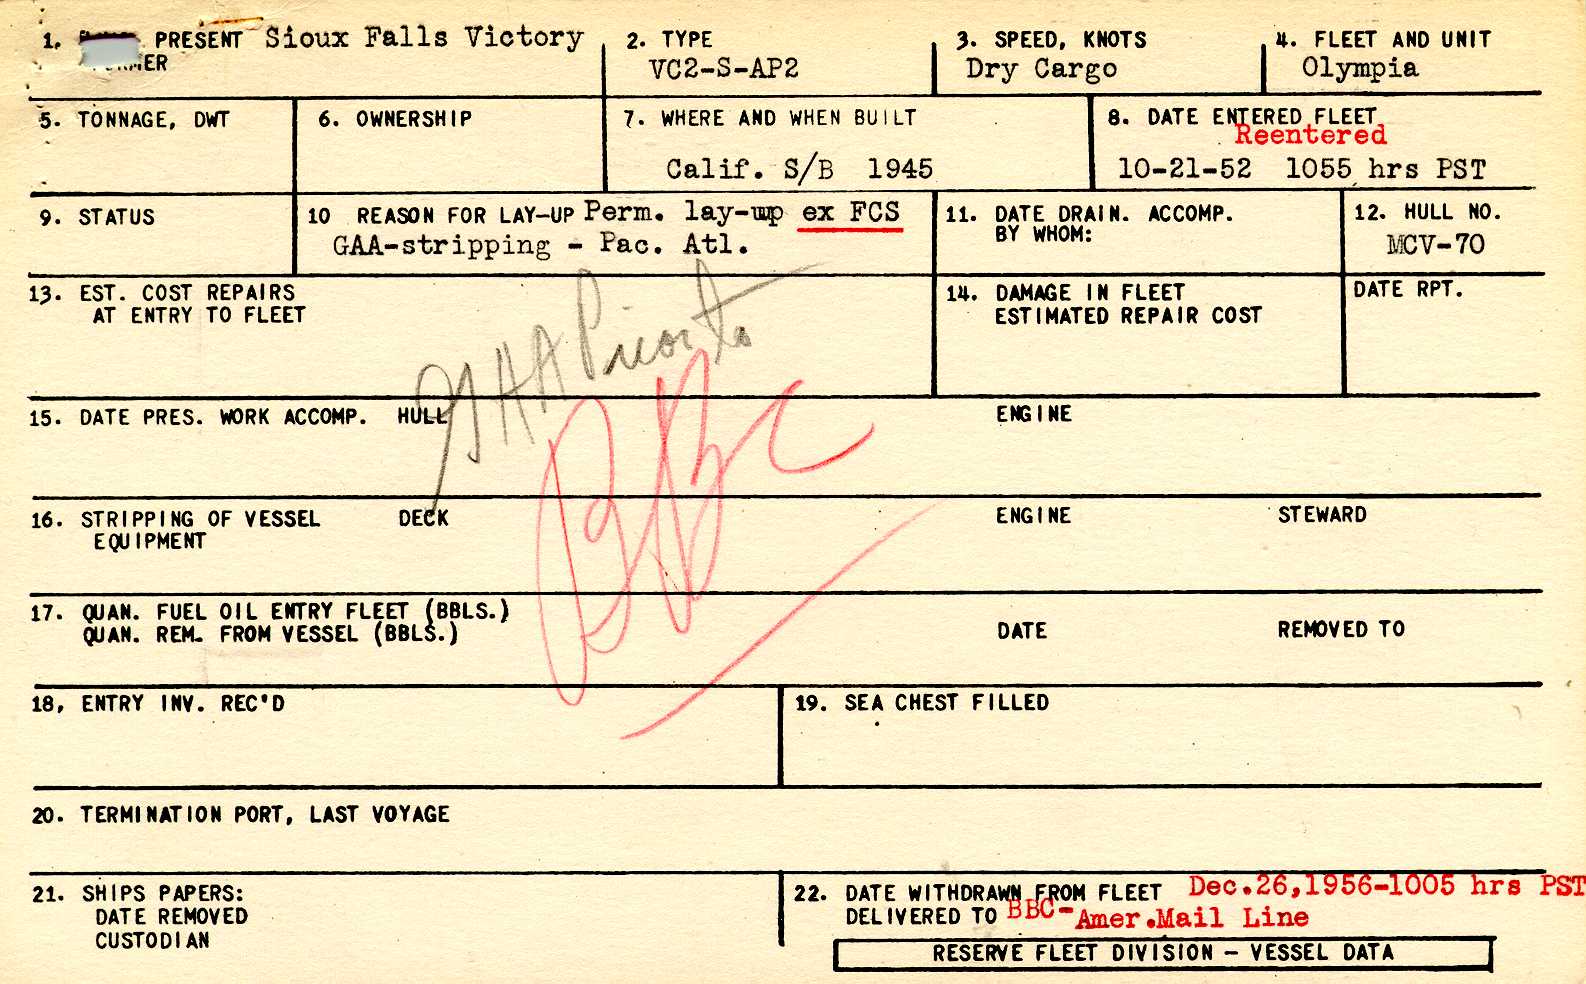 1. PRESENT Sioux Falls Victory
2. TYPE
VC2-S-AP2
3. SPEED, KNOTS
Dry Cargo
4. FLEET AND UNIT
Olympia
5. TONNAGE, DWT
6. OWNERSHIP
7. WHERE AND WHEN BUILT
Calif. S/B 1945
8. DATE ENTERED FLEET
Reentered
10-21-52 1055 hrs PST
9. STATUS
10 REASON FOR LAY-UP Perm. lay-up ex FCS
GAA-stripping - Pac. Atl.
11. DATE DRAIN. ACCOMP.
BY WHOM:
12. HULL NO.
MCV-70
13. EST. COST REPAIRS
AT ENTRY TO FLEET
14. DAMAGE IN FLEET
ESTIMATED REPAIR COST
DATE RPT.
15. DATE PRES. WORK ACCOMP. HULL
ENGINE
BBC
16. STRIPPING OF VESSEL DECK
EQUIPMENT
ENGINE
STEWARD
17. QUAN. FUEL OIL ENTRY FLEET (BBLS.)
QUAN. REM. FROM VESSEL (BBLS.)
DATE
REMOVED TO
18, ENTRY INV. REC'D
19. SEA CHEST FILLED
20. TERMINATION PORT, LAST VOYAGE
21. SHIPS PAPERS:
DATE REMOVED
CUSTODIAN
22. DATE WITHDRAWN FROM FLEET Dec.26,1956-1005 hrs PST
DELIVERED TO BBC-Amer.Mail Line
RESERVE FLEET DIVISION - VESSEL DATA